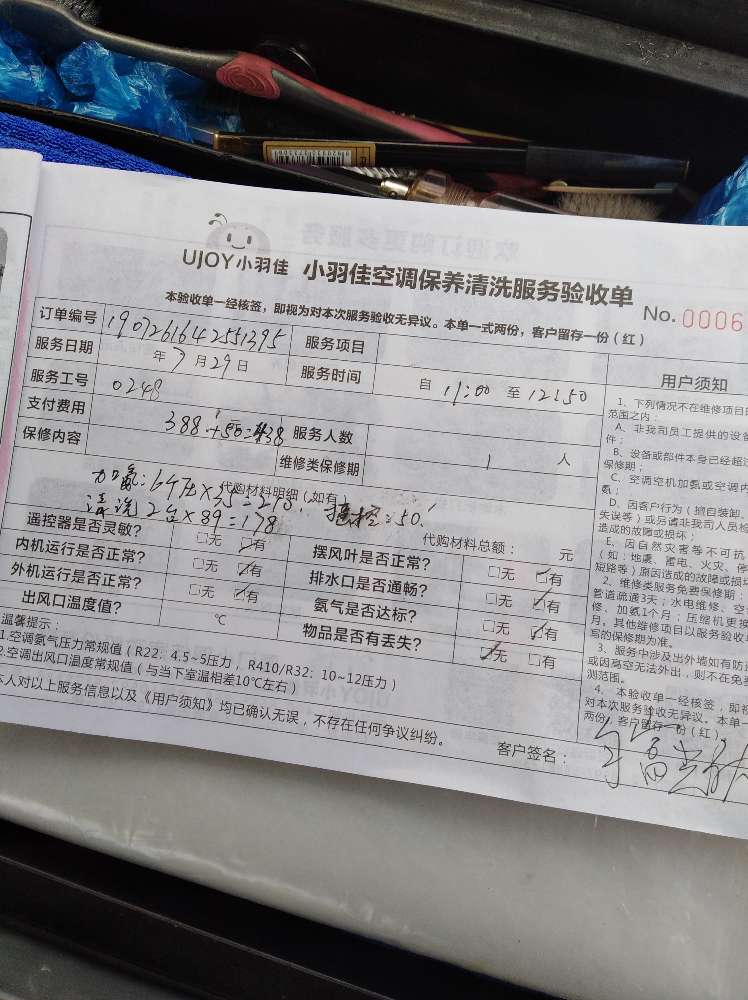 UJOY小羽佳 小羽佳空调保养清洗服务验收单
本验收单一经核签，即视为对本次服务验收无异议。本单一式两份，客户留存一份（红）
No. 0006
订单编号 1907261642551395 服务项目
服务日期 年7月29日 服务时间 自 11:00 至 12:50
服务工号 0248
支付费用 388+50=438 服务人数 1 人
保修内容 维修类保修期
代购材料明细（如有）
加氨:6个压×35=210. 遥控:50!
清洗2台×89=178
代购材料总额： 元
遥控器是否灵敏? □无 ☑有 摆风叶是否正常? □无 ☑有
内机运行是否正常? □无 ☑有 排水口是否通畅? □无 ☑有
外机运行是否正常? □无 ☑有 氨气是否达标? □无 ☑有
出风口温度值? ℃ 物品是否有丢失? ☑无 □有
温馨提示：
1.空调氨气压力常规值（R22：4.5~5压力，R410/R32：10~12压力）
2.空调出风口温度常规值（与当下室温相差10℃左右）
本人对以上服务信息以及《用户须知》均已确认无误，不存在任何争议纠纷。
客户签名：
用户须知
1、下列情况不在维修项目的
范围之内：
A、非我司员工提供的设备
件；
B、设备或部件本身已经超过
保修期；
C、空调空机加氨或空调内
氨；
D、因客户行为（擅自装卸、
失误等）或另请非我司人员检
造成的故障或损坏；
E、因自然灾害等不可抗
（如：地震、蓄电、火灾、停
短路等）原因造成的故障或损坏
2、维修类服务免费保修期：
管道疏通3天；水电维修、空
修、加氨1个月；压缩机更换
月。其他维修项目以服务验收
写的保修期为准。
3、服务中涉及出外墙如有防
或因高空无法外出，则不在免费
测范围。
4、本验收单一经核签，即视
对本次服务验收无异议。本单一
两份，客户留存一份（红）。